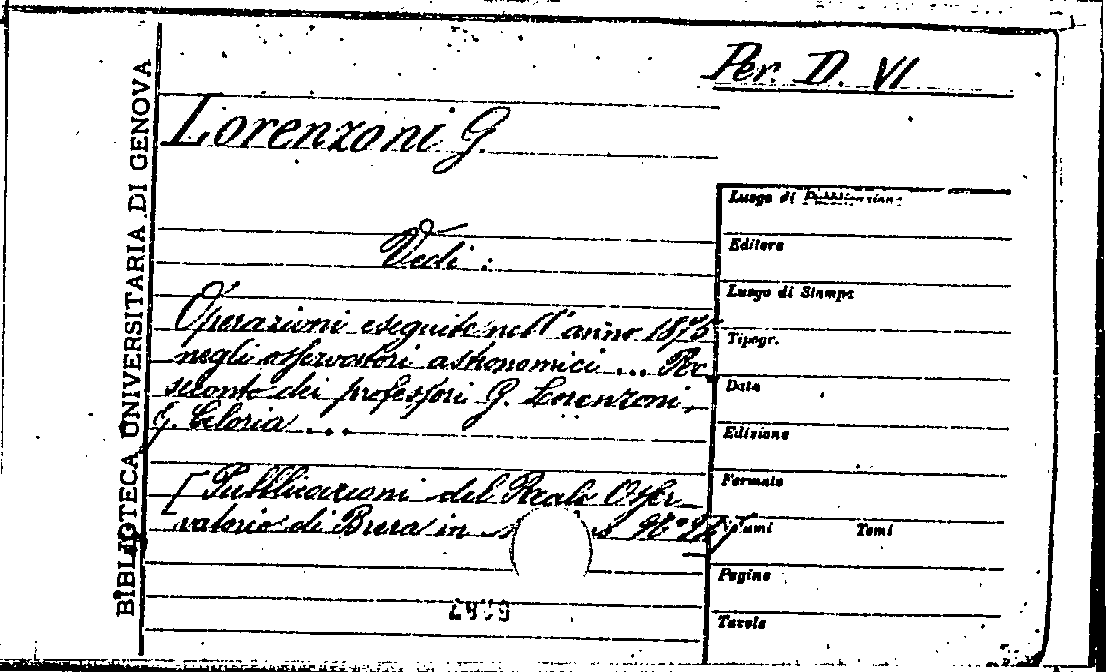 Per. D. VI
BIBLIOTECA UNIVERSITARIA DI GENOVA
Lorenzoni G.
Vedi:
Operazioni eseguite nell'anno 1875
negli osservatori astronomici ... Re-
soconto dei professori G. Lorenzoni,
G. Celoria ...
[Pubblicazioni del Reale Osser-
vatorio di Brera in N°
Luogo di Pubblicazione
Editore
Luogo di Stampa
Tipogr.
Data
Edizione
Formato
Volumi Tomi
Pagine
Tavole